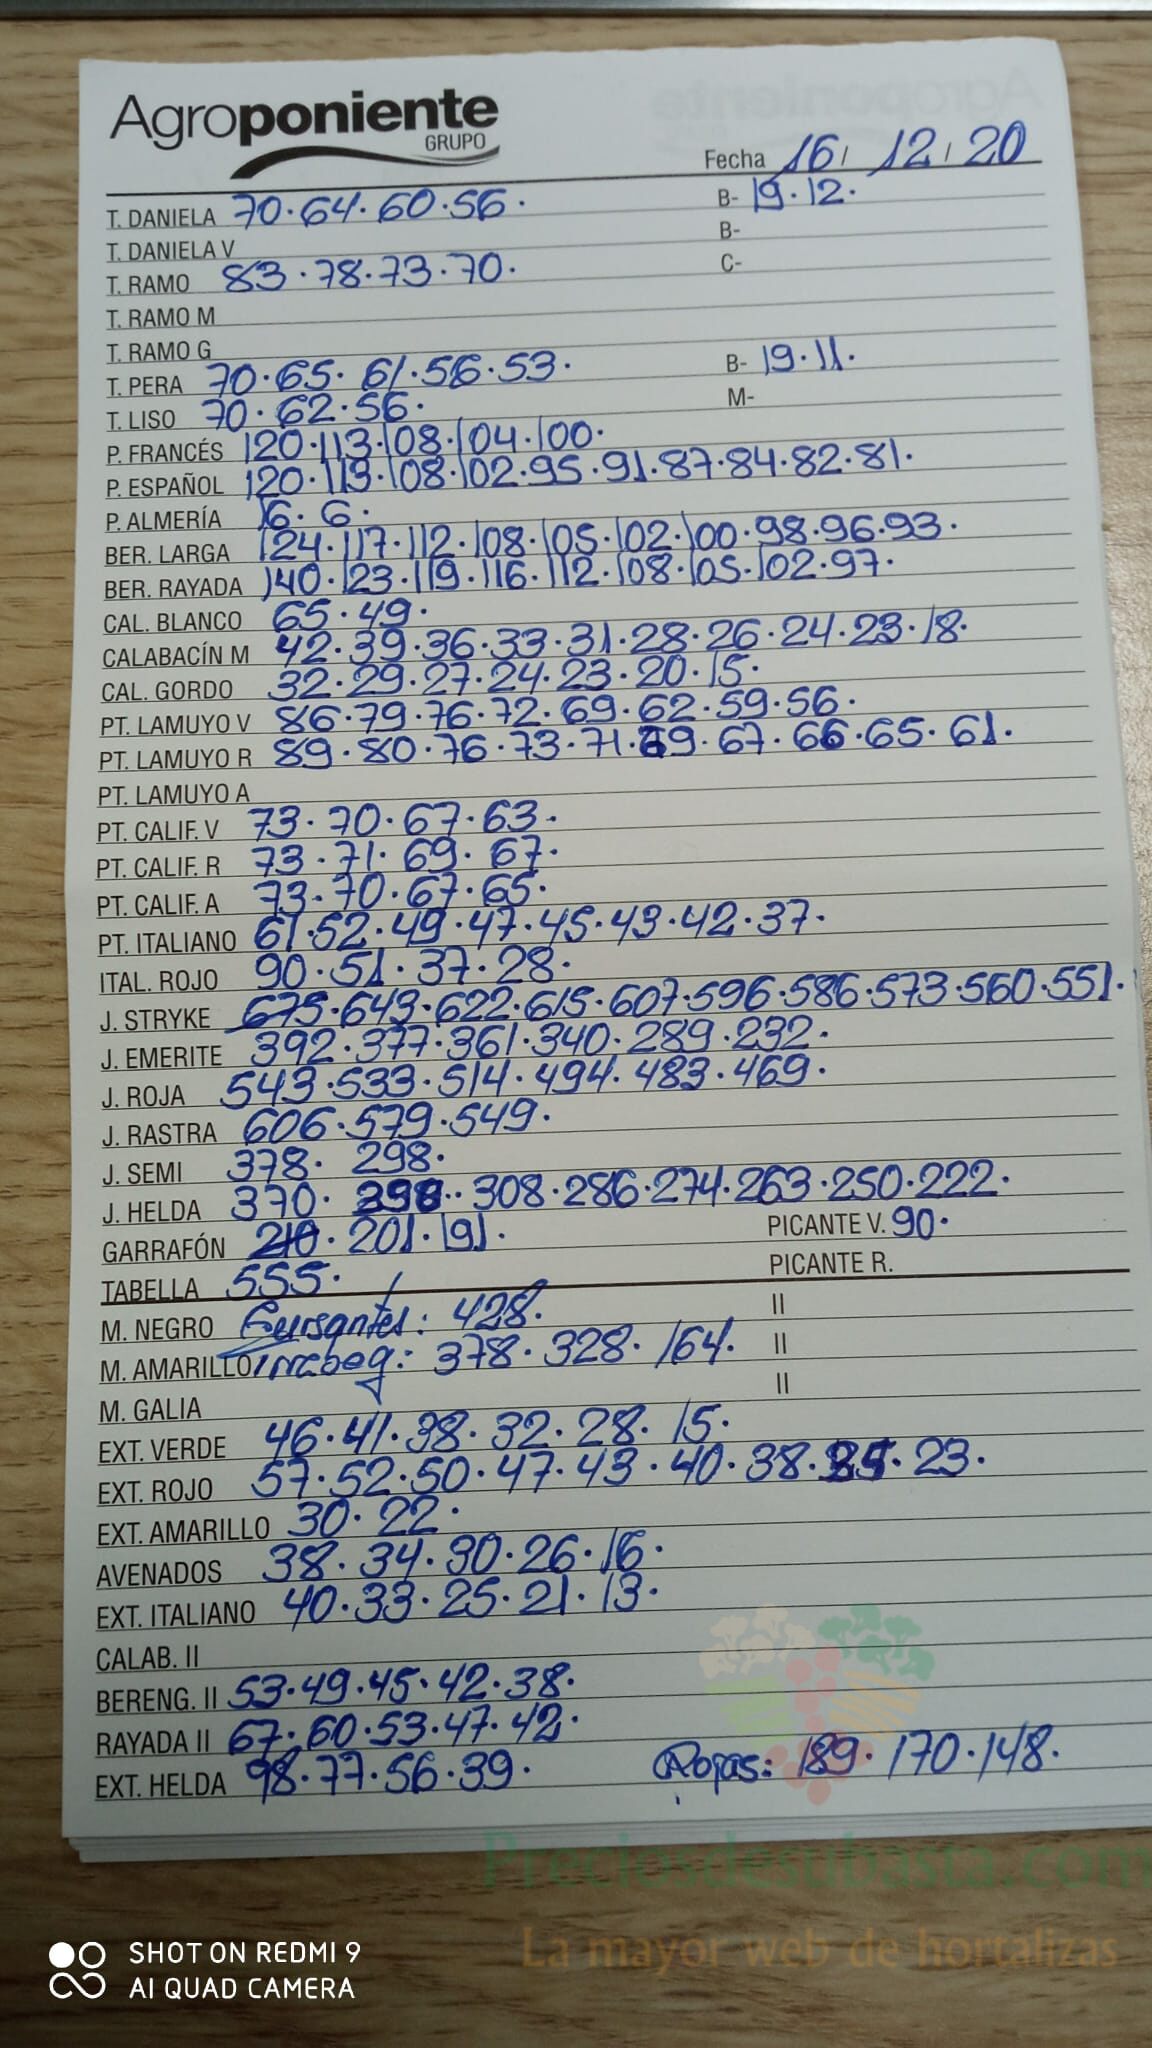 Agroponiente
GRUPO
Fecha 16 / 12 / 20
T. DANIELA 70·64·60·56· B- 19·12·
T. DANIELA V B-
T. RAMO 83·78·73·70· C-
T. RAMO M
T. RAMO G
T. PERA 70·65·61·56·53· B- 19·11·
T. LISO 70·62·56· M-
P. FRANCÉS 120·113·108·104·100·
P. ESPAÑOL 120·113·108·102·95·91·87·84·82·81·
P. ALMERÍA 16·6·
BER. LARGA 124·117·112·108·105·102·100·98·96·93·
BER. RAYADA 140·123·119·116·112·108·105·102·97·
CAL. BLANCO 65·49·
CALABACÍN M 42·39·36·33·31·28·26·24·23·18·
CAL. GORDO 32·29·27·24·23·20·15·
PT. LAMUYO V 86·79·76·72·69·62·59·56·
PT. LAMUYO R 89·80·76·73·71·69·67·66·65·61·
PT. LAMUYO A
PT. CALIF. V 73·70·67·63·
PT. CALIF. R 73·71·69·67·
PT. CALIF. A 73·70·67·65·
PT. ITALIANO 61·52·49·47·45·43·42·37·
ITAL. ROJO 90·51·37·28·
J. STRYKE 675·643·622·615·607·596·586·573·560·551·
J. EMERITE 392·377·361·340·289·232·
J. ROJA 543·533·514·494·483·469·
J. RASTRA 606·579·549·
J. SEMI 378·298·
J. HELDA 370· 308·286·274·263·250·222·
GARRAFÓN 210·201·191· PICANTE V. 90·
TABELLA 555· PICANTE R.
M. NEGRO 428· II
M. AMARILLO 378·328·164· II
M. GALIA II
EXT. VERDE 46·41·38·32·28·15·
EXT. ROJO 57·52·50·47·43·40·38· 23·
EXT. AMARILLO 30·22·
AVENADOS 38·34·30·26·16·
EXT. ITALIANO 40·33·25·21·13·
CALAB. II
BERENG. II 53·49·45·42·38·
RAYADA II 67·60·53·47·42·
EXT. HELDA 98·77·56·39· Rojas: 189·170·148·
Preciosdesubasta.com
La mayor web de hortalizas
SHOT ON REDMI 9
AI QUAD CAMERA